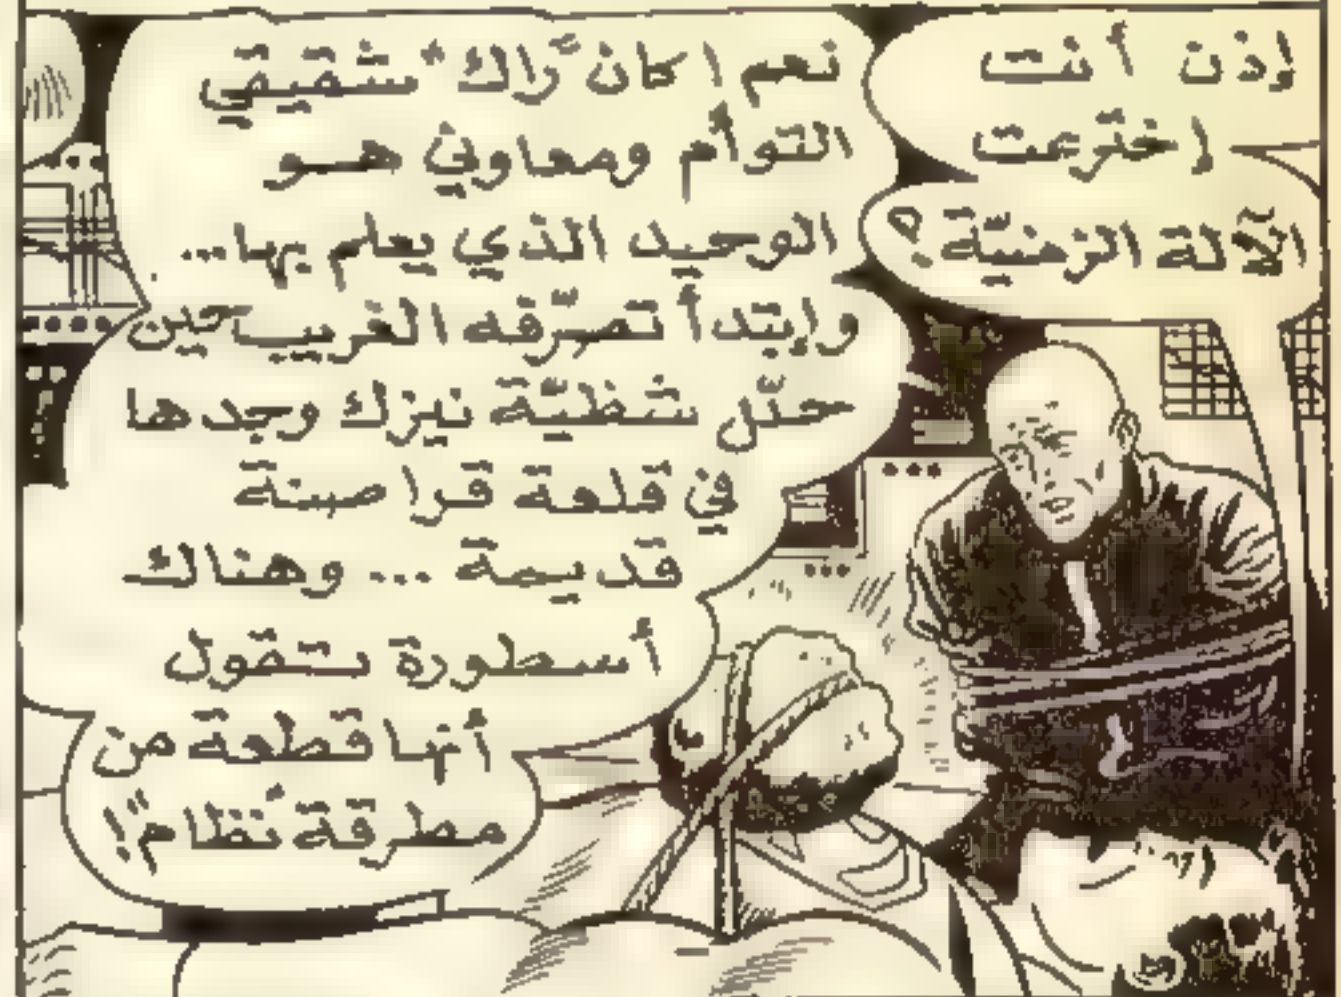 إذن أنت
إخترعت
الآلة الزمنيّة؟
نعم! كان "راك" شقيقي
التوأم ومعاوني هو
الوحيد الذي يعلم بها...
وابتدأ تصرّفه الغريب حين
حلّل شظيّة نيزك وجدها
في قلعة قراصنة
قديمة ... وهناك
أسطورة تقول
أنها قطعة من
مطرقة "نظام"!